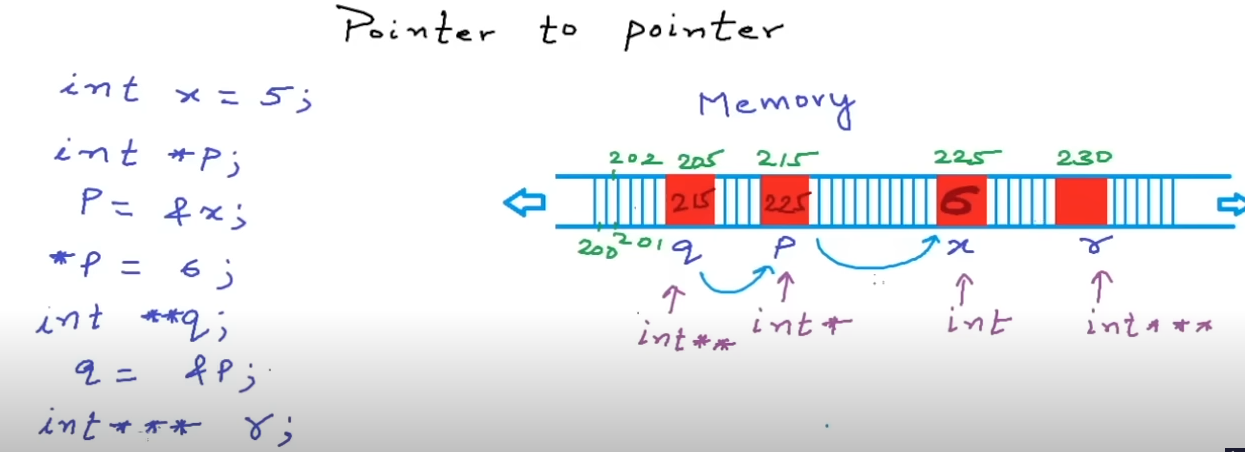 Pointer to pointer
int x = 5;
int *p;
p = &x;
*p = 6;
int **q;
q = &p;
int*** r;
Memory
202 205 215 225 230
215 225 6
200 201 q p x r
int** int* int int***